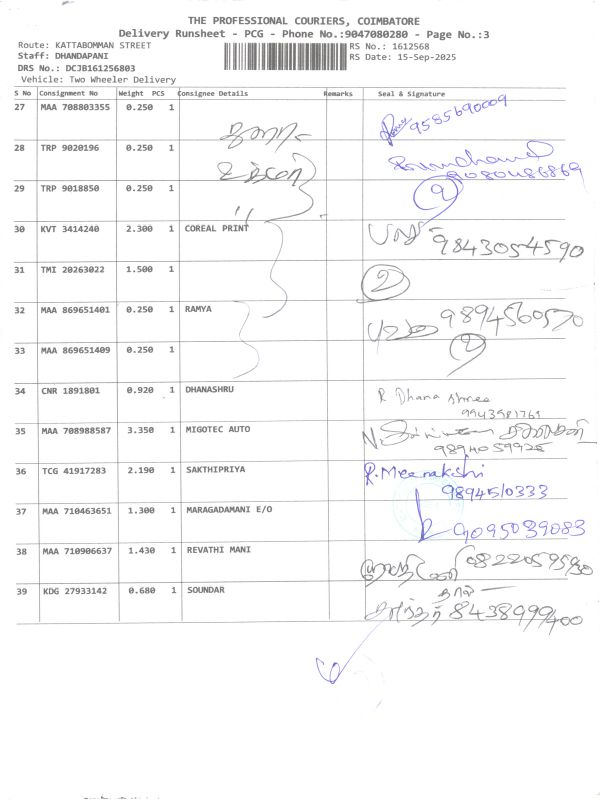 THE PROFESSIONAL COURIERS, COIMBATORE
Delivery Runsheet - PCG - Phone No.:9047080280 - Page No.:3
Route: KATTABOMMAN STREET RS No.: 1612568
Staff: DHANDAPANI RS Date: 15-Sep-2025
DRS No.: DCJB161256803
Vehicle: Two Wheeler Delivery
S No Consignment No Weight PCS Consignee Details Remarks Seal & Signature
27 MAA 708803355 0.250 1 9585690009
28 TRP 9020196 0.250 1 9080486869
29 TRP 9018850 0.250 1 " 2
30 KVT 3414240 2.300 1 COREAL PRINT 9843054590
31 TMI 20263022 1.500 1 2
32 MAA 869651401 0.250 1 RAMYA 9894560570
33 MAA 869651409 0.250 1 2
34 CNR 1891801 0.920 1 DHANASHRU R Dhana shree
9943981761
35 MAA 708988587 3.350 1 MIGOTEC AUTO
9894059925
36 TCG 41917283 2.190 1 SAKTHIPRIYA R.Meenakshi
9894510333
37 MAA 710463651 1.300 1 MARAGADAMANI E/O 9095039083
38 MAA 710906637 1.430 1 REVATHI MANI
39 KDG 27933142 0.680 1 SOUNDAR 8438999400